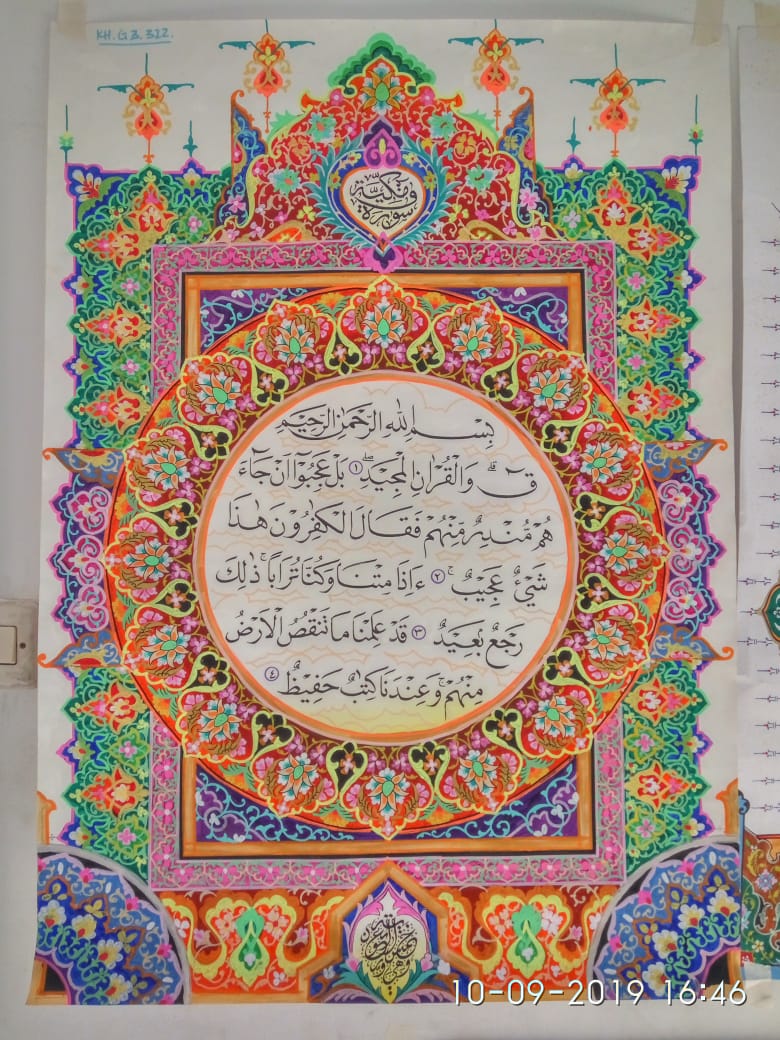 KH. G3. 322
سورة ق مكية
بِسْمِ اللهِ الرَّحْمٰنِ الرَّحِيْمِ
قٓ ۗ وَالْقُرْاٰنِ الْمَجِيْدِۖ ١ بَلْ عَجِبُوْٓا اَنْ جَاۤءَ
هُمْ مُّنْذِرٌ مِّنْهُمْ فَقَالَ الْكٰفِرُوْنَ هٰذَا
شَيْءٌ عَجِيْبٌ ۚ ٢ ءَاِذَا مِتْنَا وَكُنَّا تُرَابًا ۚ ذٰلِكَ
رَجْعٌ بَعِيْدٌ ٣ قَدْ عَلِمْنَا مَا تَنْقُصُ الْاَرْضُ
مِنْهُمْ ۚ وَعِنْدَنَا كِتٰبٌ حَفِيْظٌ ٤
10-09-2019 16:46